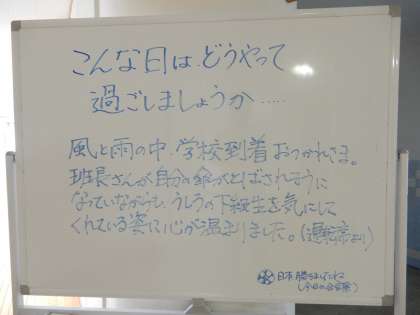 こんな日は、どうやって
過ごしましょうか……
風と雨の中、学校到着おつかれさま。
班長さんが自分の傘がとばされそうに
なっていながらも、うしろの下級生を気にして
くれている姿に心が温まりました。(より)
日本 勝
(今日の